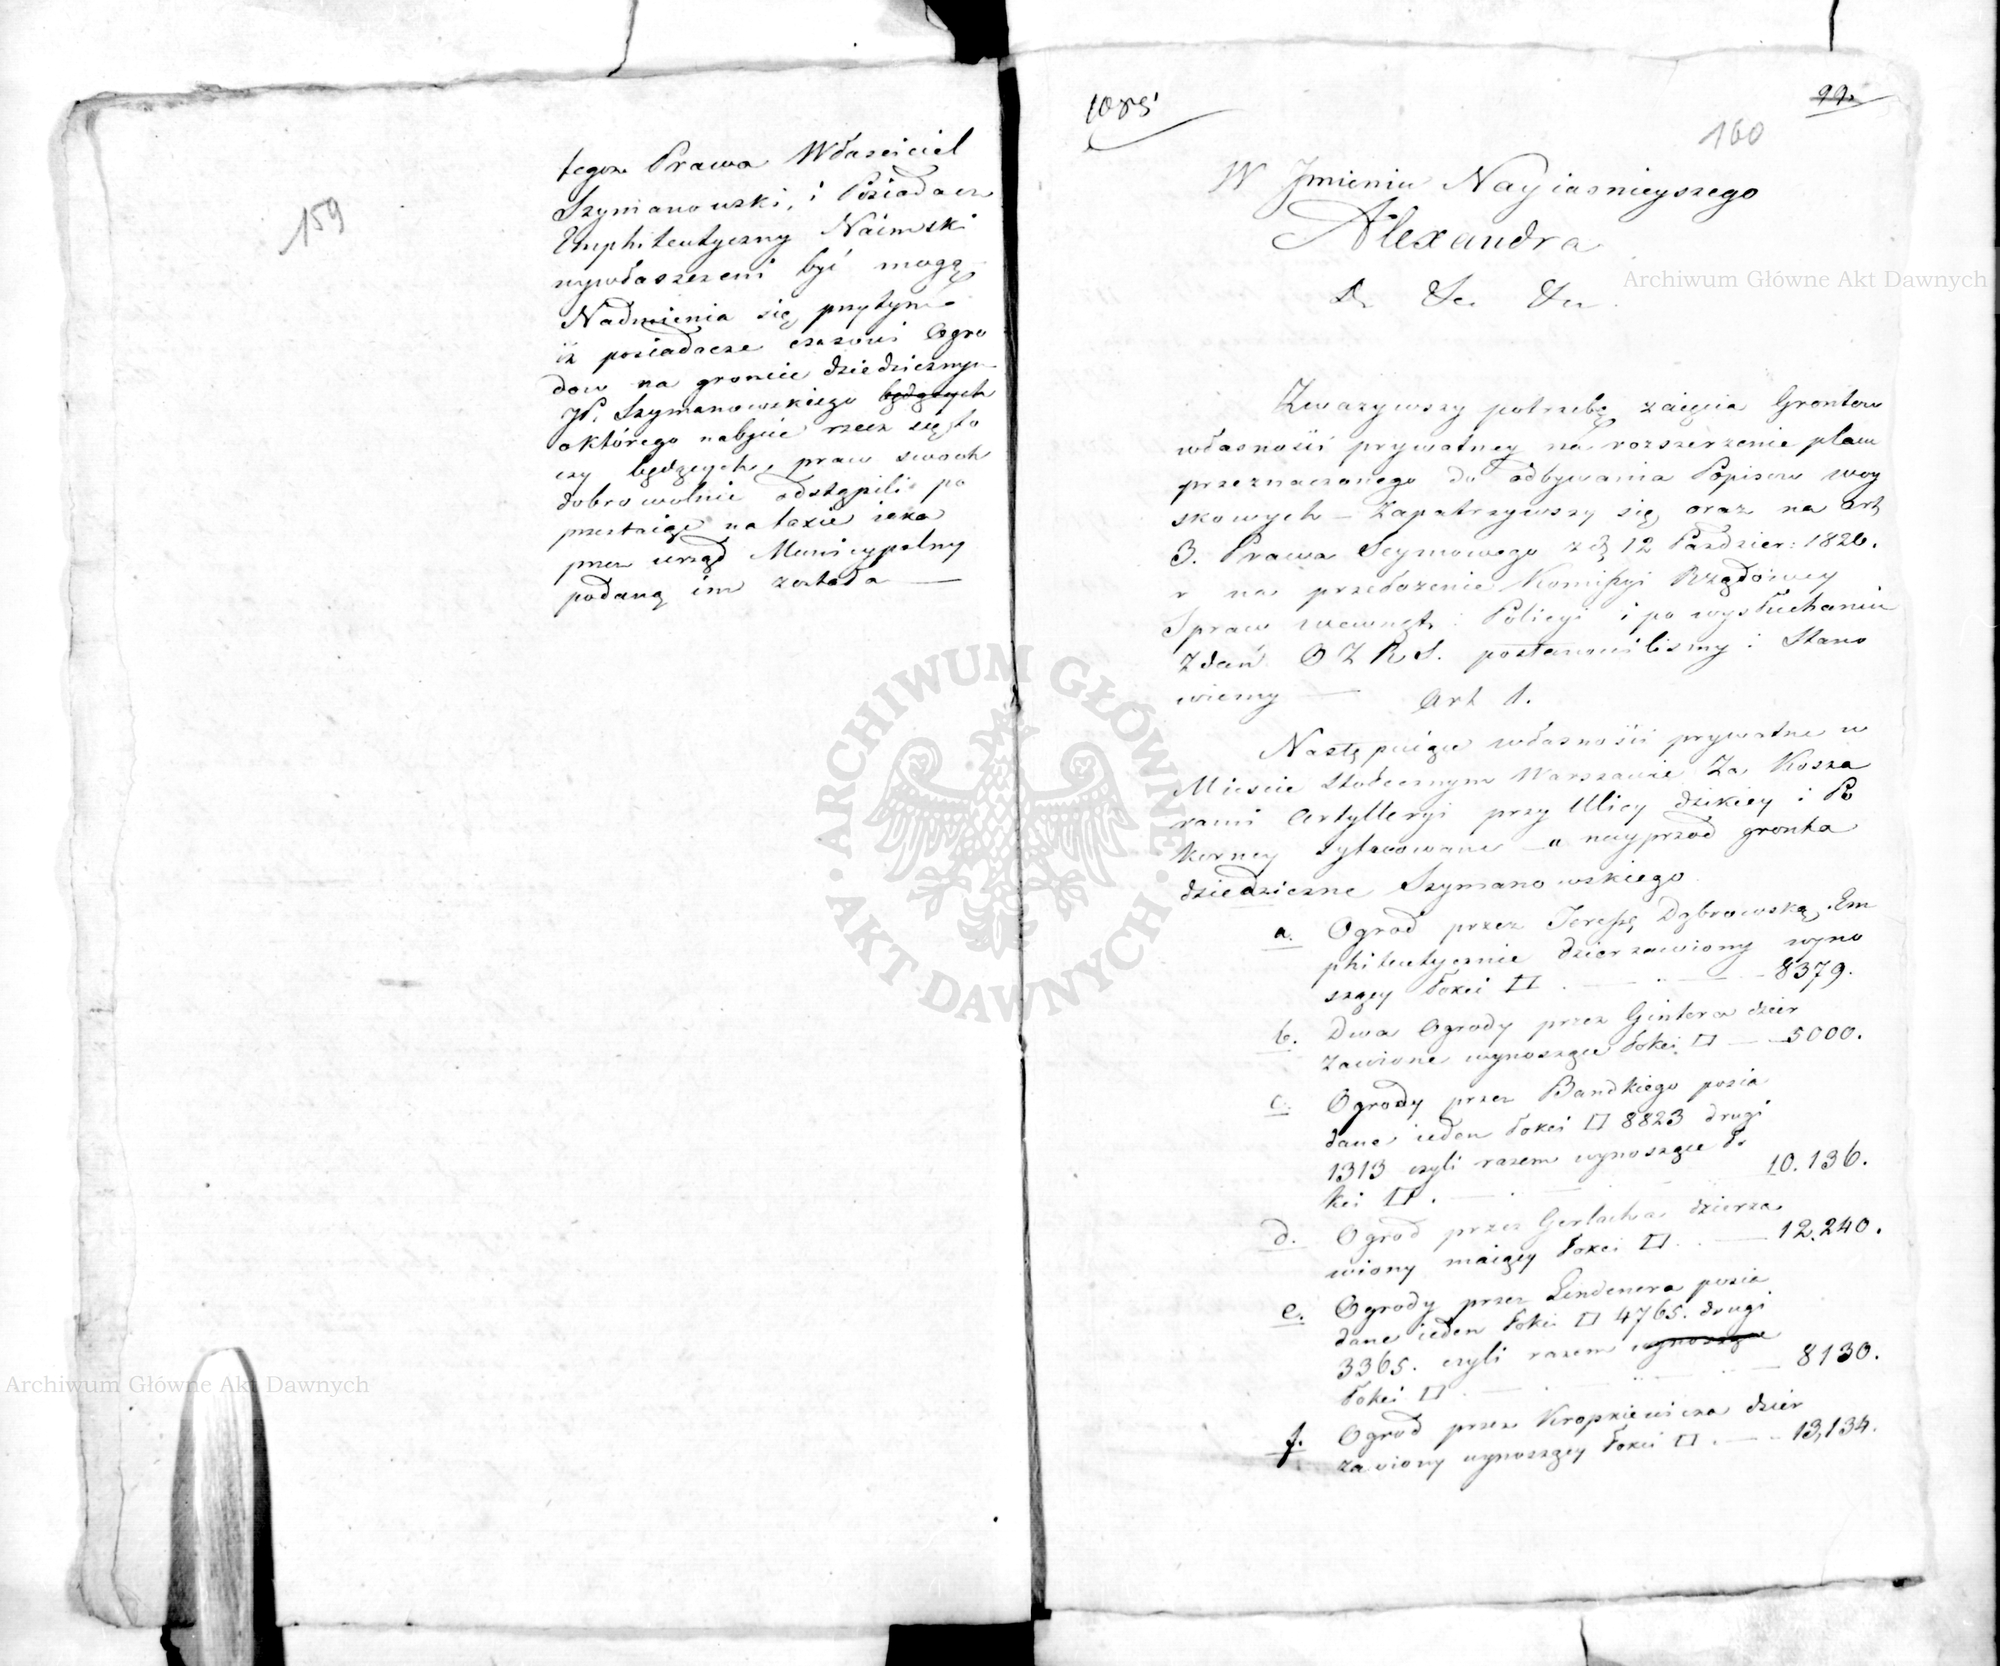 159
tegoż Prawa Właściciel
Szymanowski, i Posiadacz
Emphiteutyczny Naimski
wywłaszczeni być mogą
Nadmienia się przytym
iż posiadacze czasowi Ogro
dow na gruncie dziedzicznym
JP. Szymanowskiego będących
o którego nabycie rzecz się to
czy będących, praw swoich
dobrowolnie odstąpili po
przestaiąc na taxie iaka
przez urząd Municypalny
podaną im została —
1085
99.
160
W Jmieniu Nayiasnieyszego
Alexandra
&c &c &c
Zwazywszy potrzebę zaięcia Grontow
własności prywatney na rozszerzenie placu
przeznaczonego do odbywania Popisow woy
skowych — Zapatrzywszy się oraz na art
3. Prawa Seymowego z d. 12 Pazdzier: 1820.
r na przełożenie Kommissyi Rządowey
Spraw wewnęt: Policyi i po wysłuchaniu
Zdań O Z R S. postanowiliśmy i Stano
wiemy — Art 1.
Następuiące własności prywatne w
Mieście Stołecznym Warszawie Za Kosza
rami Artylleryi przy Ulicy dzikiey i Po
korney sytuowane — a nayprzod gronta
dziedziczne Szymanowskiego
a. Ogrod przez Teressę Dąbrowską Em
phiteutycznie dzierzawiony wyno
szący łokci □ . — . — 8379.
b. Dwa Ogrody przez Gintera dzier
zawione wynoszące łokci □ — 5000.
c. Ogrody przez Bandkiego posia
dane ieden łokci □ 8823 drugi
1313 czyli razem wynoszące ło
kci □ . — . — 10.136.
d. Ogrod przez Gerlacha dzierza
wiony maiący łokci □ . — 12.240.
e. Ogrody przez Lindenera posia
dane ieden łokci □ 4765. drugi
3365. czyli razem wynoszące
łokci □ . — . — 8130.
f. Ogrod przez Kropiewicza dzier
zawiony wynoszący łokci □ . — . 13,134.
Archiwum Główne Akt Dawnych
Archiwum Główne Akt Dawnych
ARCHIWUM GŁÓWNE AKT DAWNYCH